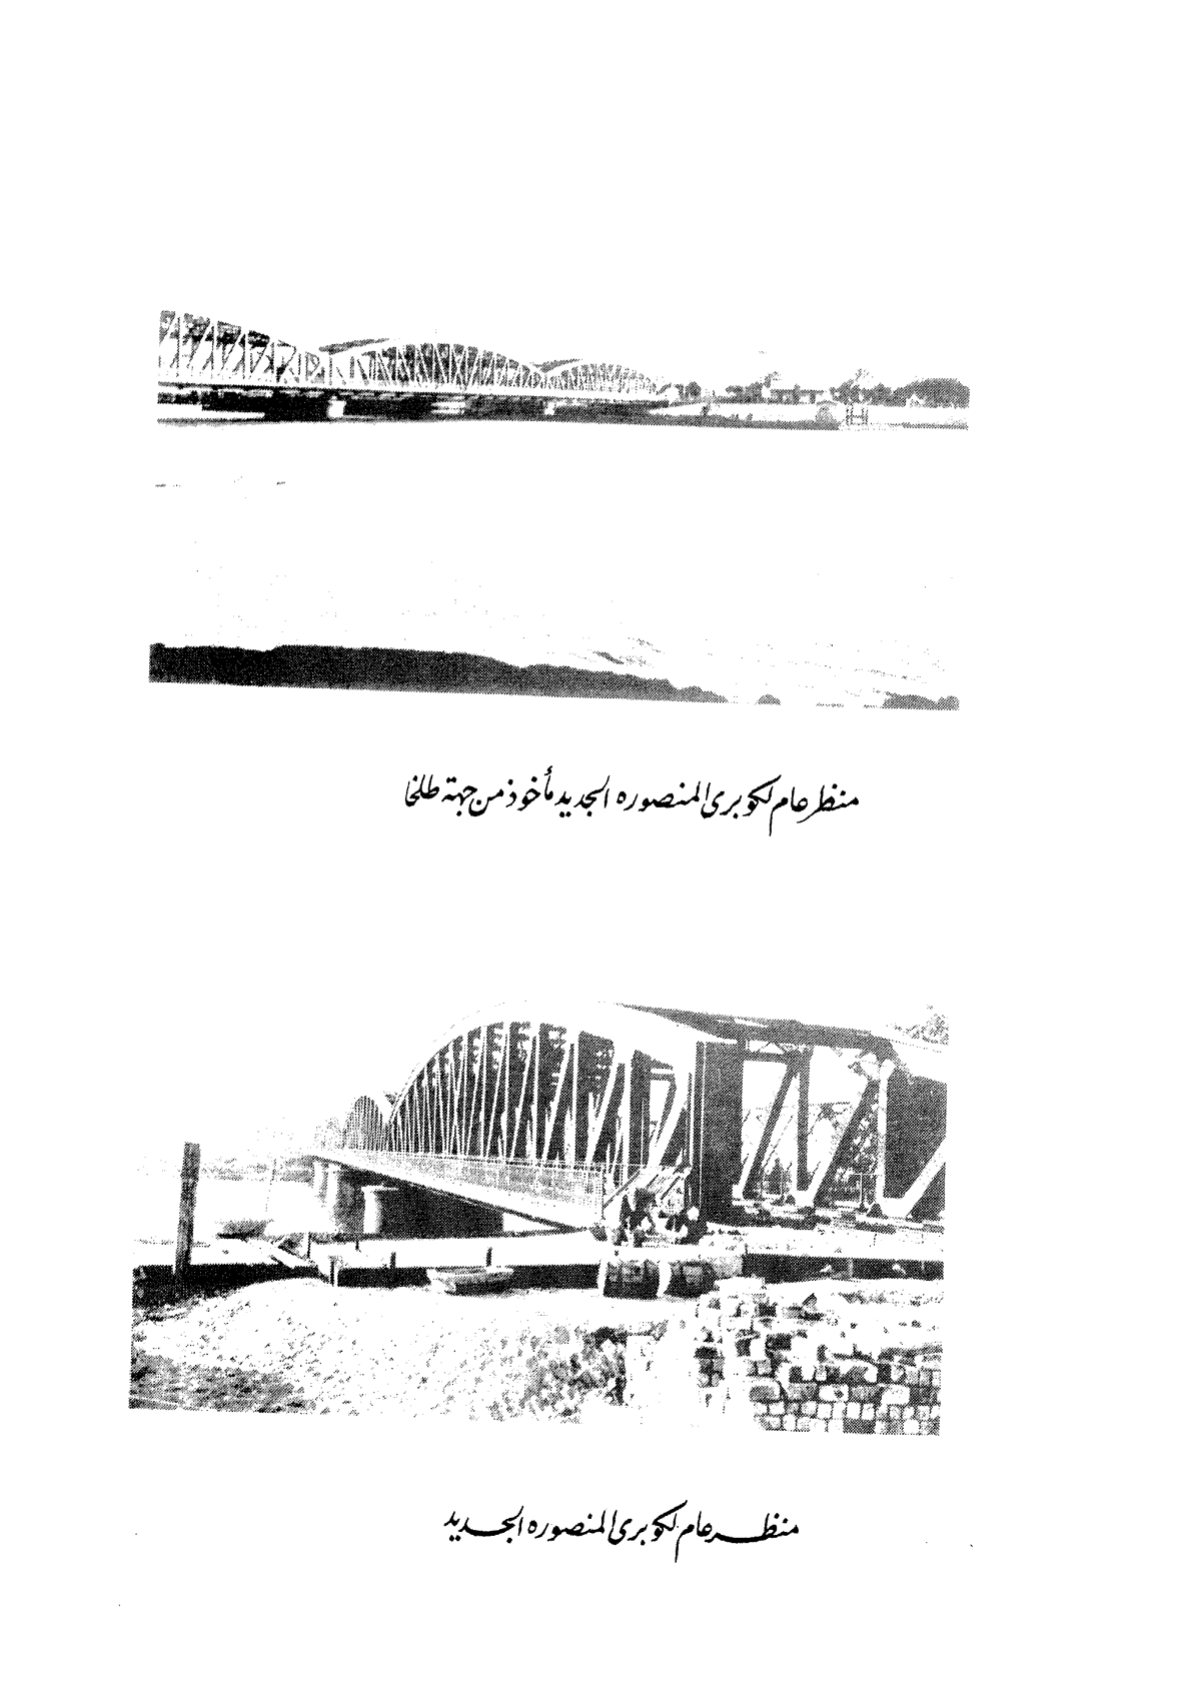 منظر عام لكوبرى المنصوره الجديد مأخوذ من جهة طلخا
منظر عام لكوبرى المنصوره الجديد